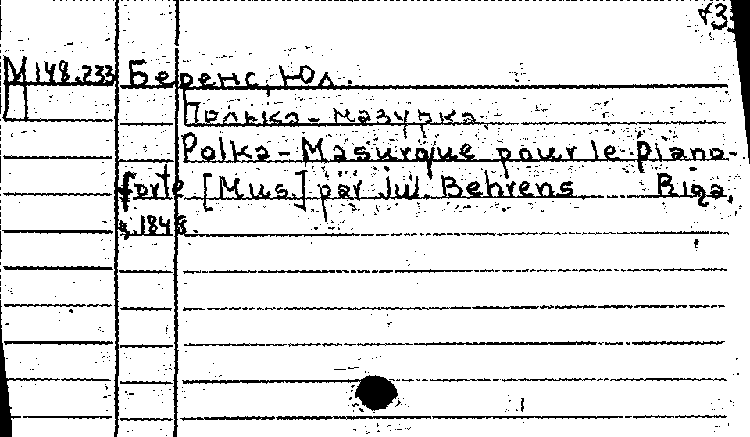 М 148.233 Беренс, Юл.
Полька-мазурка.
Polka-Masurque pour le piano-
forte [Mus.] par Jul. Behrens. Riga,
1848.